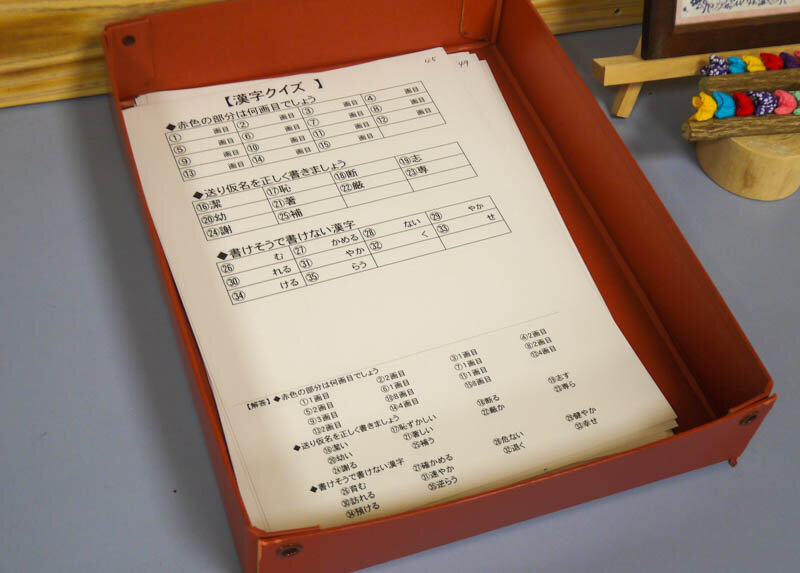 45
49
【漢字クイズ 】
◆赤色の部分は何画目でしょう
① 画目 ② 画目 ③ 画目 ④ 画目
⑤ 画目 ⑥ 画目 ⑦ 画目 ⑧ 画目
⑨ 画目 ⑩ 画目 ⑪ 画目 ⑫ 画目
⑬ 画目 ⑭ 画目 ⑮ 画目
◆送り仮名を正しく書きましょう
⑯潔 ⑰恥 ⑱断 ⑲志
⑳幼 ㉑著 ㉒厳 ㉓専
㉔謝 ㉕補
◆書けそうで書けない漢字
㉖ む ㉗ かめる ㉘ ない ㉙ やか
㉚ れる ㉛ やか ㉜ く ㉝ せ
㉞ ける ㉟ らう
【解答】◆赤色の部分は何画目でしょう
①1画目 ②2画目 ③1画目 ④2画目
⑤2画目 ⑥1画目 ⑦1画目 ⑧2画目
⑨3画目 ⑩8画目 ⑪1画目 ⑫4画目
⑬2画目 ⑭4画目 ⑮8画目
◆送り仮名を正しく書きましょう
⑯潔い ⑰恥ずかしい ⑱断る ⑲志す
⑳幼い ㉑著しい ㉒厳か ㉓専ら
㉔謝る ㉕補う
◆書けそうで書けない漢字
㉖育む ㉗確かめる ㉘危ない ㉙健やか
㉚訪れる ㉛速やか ㉜退く ㉝幸せ
㉞預ける ㉟逆らう